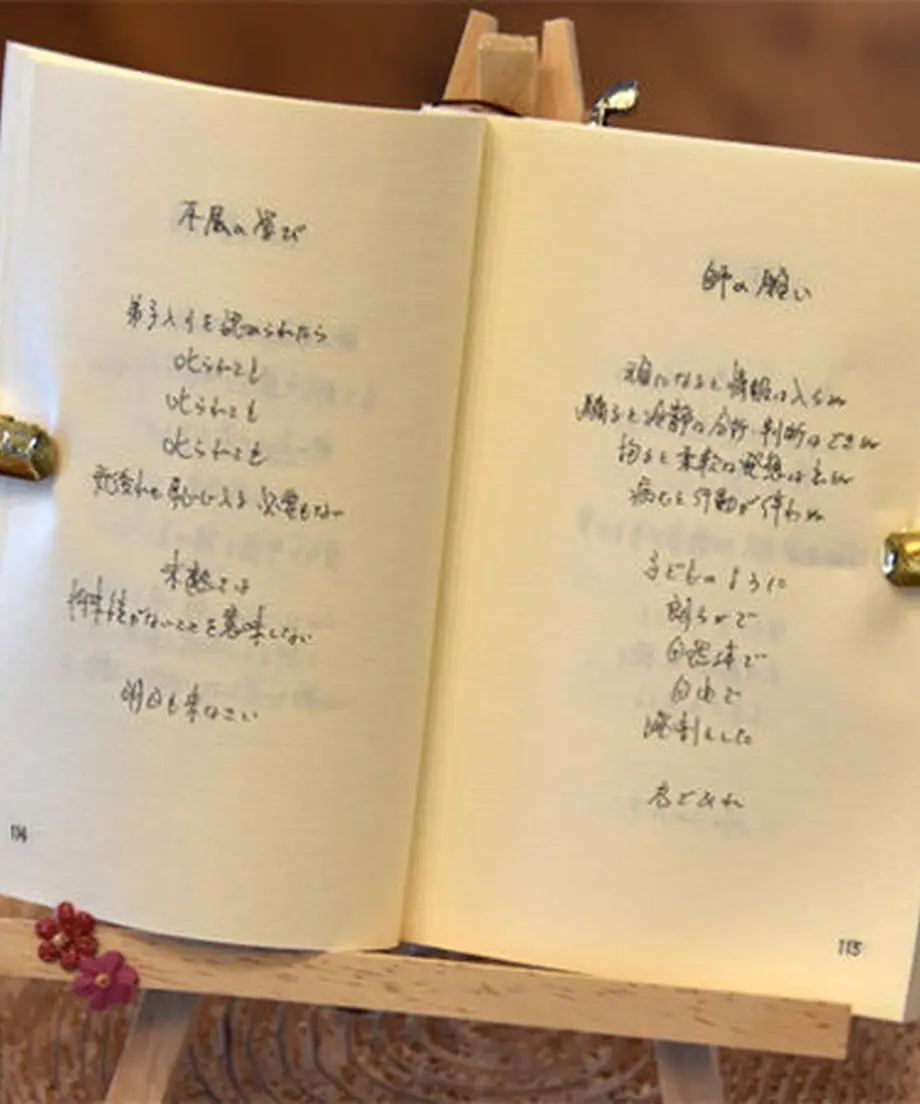 不屈の学び
弟子入りを認められたら
叱られても
叱られても
叱られても
恥じ入る必要もない
未熟とは
可能性がないことを意味しない
明日も来なさい
114
師の願い
頑になると情報は入らぬ
驕ると冷静な分析・判断はできぬ
拘ると柔軟な発想は
病むと行動が伴わぬ
子どものように
朗らかで
自然体で
自由で
溌剌とした
者であれ
115